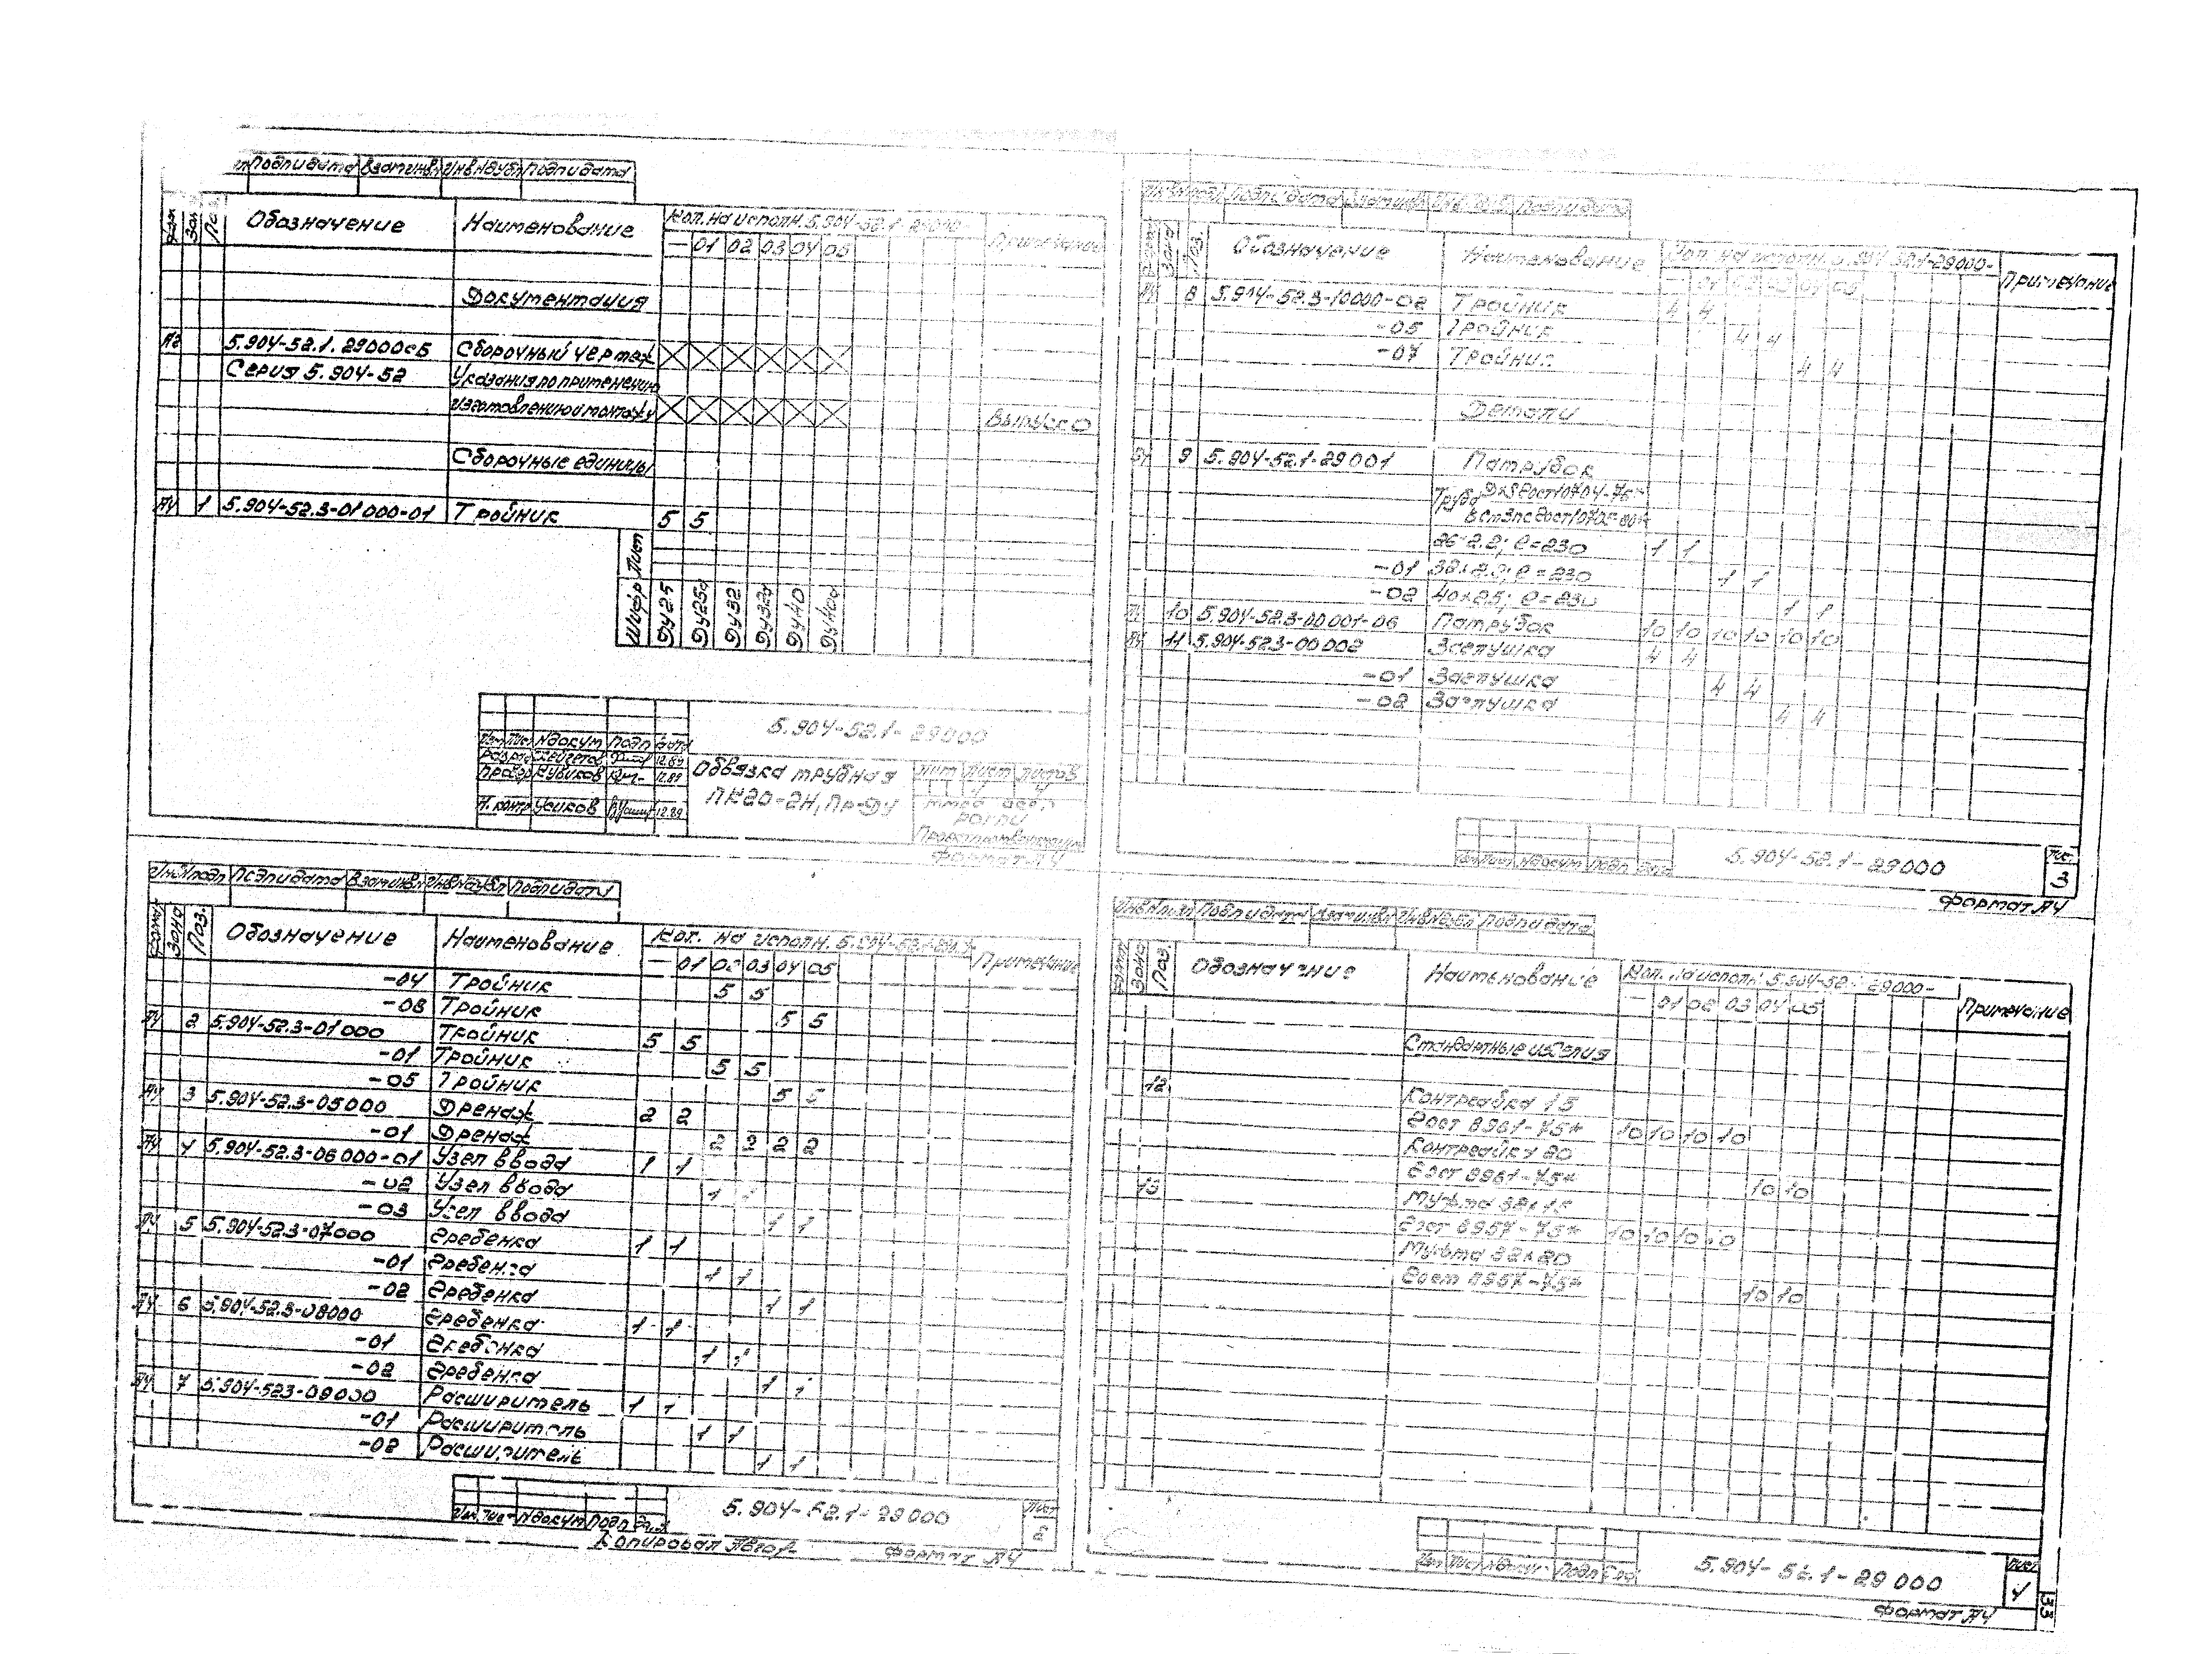 Подп и дата Взам инв Инв № дубл Подп и дата
Обозначение Наименование Кол. на исполн. 5.904-52.1-29000- Примечание
— 01 02 03 04 05
Документация
А2 5.904-52.1.29000сб Сборочный чертеж
Серия 5.904-52 Указания по применению
изготовлению и монтажу Выпуск 0
Сборочные единицы
А4 1 5.904-52.3-01000-01 Тройник 5 5
Шифр Лист
Ду25 Ду25а Ду32 Ду32а Ду40 Ду40а
5.904-52.1-29000
Изм Лист № докум Подп Дата
12.89
Провер Кубиков 12.89
Н. контр Усиков 12.89
Обвязка трубная
ПК20-2Н, Пр-Ду
Лит Лист Листов
Формат А4
Инв № подл Подп и дата Взам инв Инв № дубл Подп и дата
Формат Зона Поз. Обозначение Наименование Кол. на исполн. 5.904-52.1-29000- Примечание
— 01 02 03 04 05
-04 Тройник 5 5
-08 Тройник 5 5
А4 2 5.904-52.3-01000 Тройник 5 5
-01 Тройник 5 5
-05 Тройник 5 5
А4 3 5.904-52.3-05000 Дренаж 2 2
-01 Дренаж 2 2 2 2
А4 4 5.904-52.3-06000-01 Узел ввода 1 1
-02 Узел ввода 1 1
-03 Узел ввода 1 1
А4 5 5.904-52.3-07000 Гребенка 1 1
-01 Гребенка 1 1
-02 Гребенка 1 1
А4 6 5.904-52.3-08000 Гребенка 1 1
-01 Гребенка 1 1
-02 Гребенка 1 1
А4 7 5.904-523-09000 Расширитель 1 1
-01 Расширитель 1 1
-02 Расширитель 1 1
Изм Лист № докум Подп Дата
5.904-52.1-29000
Лист
2
Копировал Формат А4
Инв № подл Подп и дата Взам инв Инв № дубл Подп и дата
Формат Зона Поз. Обозначение Наименование Кол. на исполн. 5.904-52.1-29000- Примечание
— 01 02 03 04 05
А4 8 5.904-52.3-10000-02 Тройник 4 4
-05 Тройник 4 4
-07 Тройник 4 4
Детали
БЧ 9 5.904-52.1-29001 Патрубок
Труба ДхS Гост 10704-76*
В Ст3пс Гост 10705-80*
26×2.2; ℓ=230 1 1
-01 32×2.5; ℓ=230 1 1
-02 40×2.5; ℓ=230 1 1
А4 10 5.904-52.3-00001-06 Патрубок 10 10 10 10 10 10
А4 11 5.904-523-00002 Заглушка 4 4
-01 Заглушка 4 4
-02 Заглушка 4 4
Изм Лист № докум Подп Дата
5.904-52.1-29000
Лист
3
Формат А4
Инв № подл Подп и дата Взам инв Инв № дубл Подп и дата
Формат Зона Поз. Обозначение Наименование Кол. на исполн. 5.904-52.1-29000- Примечание
— 01 02 03 04 05
Стандартные изделия
12 Контргайка 15
Гост 8961-75* 10 10 10 10
Контргайка 20
Гост 8961-75* 10 10
13 Муфта 32×15
Гост 8957-75* 10 10 10 10
Муфта 32×20
Гост 8957-75* 10 10
Изм Лист № докум Подп Дата
5.904-52.1-29000
Лист
4
Формат А4
33